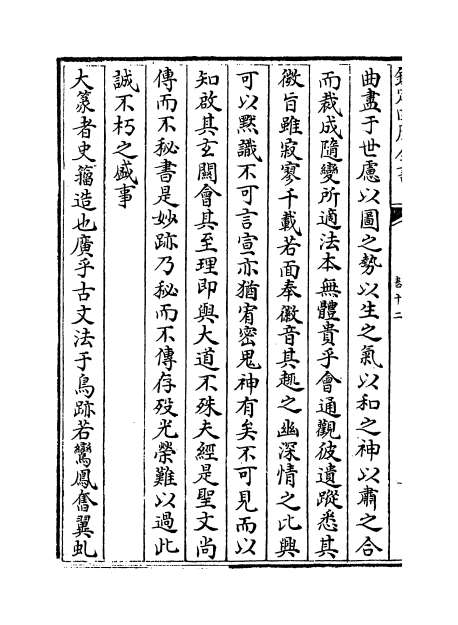 曲盡于世慮以圖之勢以生之氣以和之神以肅之合
而裁成隨變所適法本無體貴乎會通觀彼遺蹤悉其
微旨雖寂寥千載若面奉徽音其趣之幽深情之比興
可以默識不可言宣亦猶冥密鬼神有矣不可見而以
知啟其玄關會其至理即與大道不殊夫經是聖文尚
傳而不秘書是妙跡乃秘而不傳存歿光榮難以過此
誠不朽之盛事
大篆者史籀造也廣乎古文法于鳥跡若鸞鳳奮翼虬